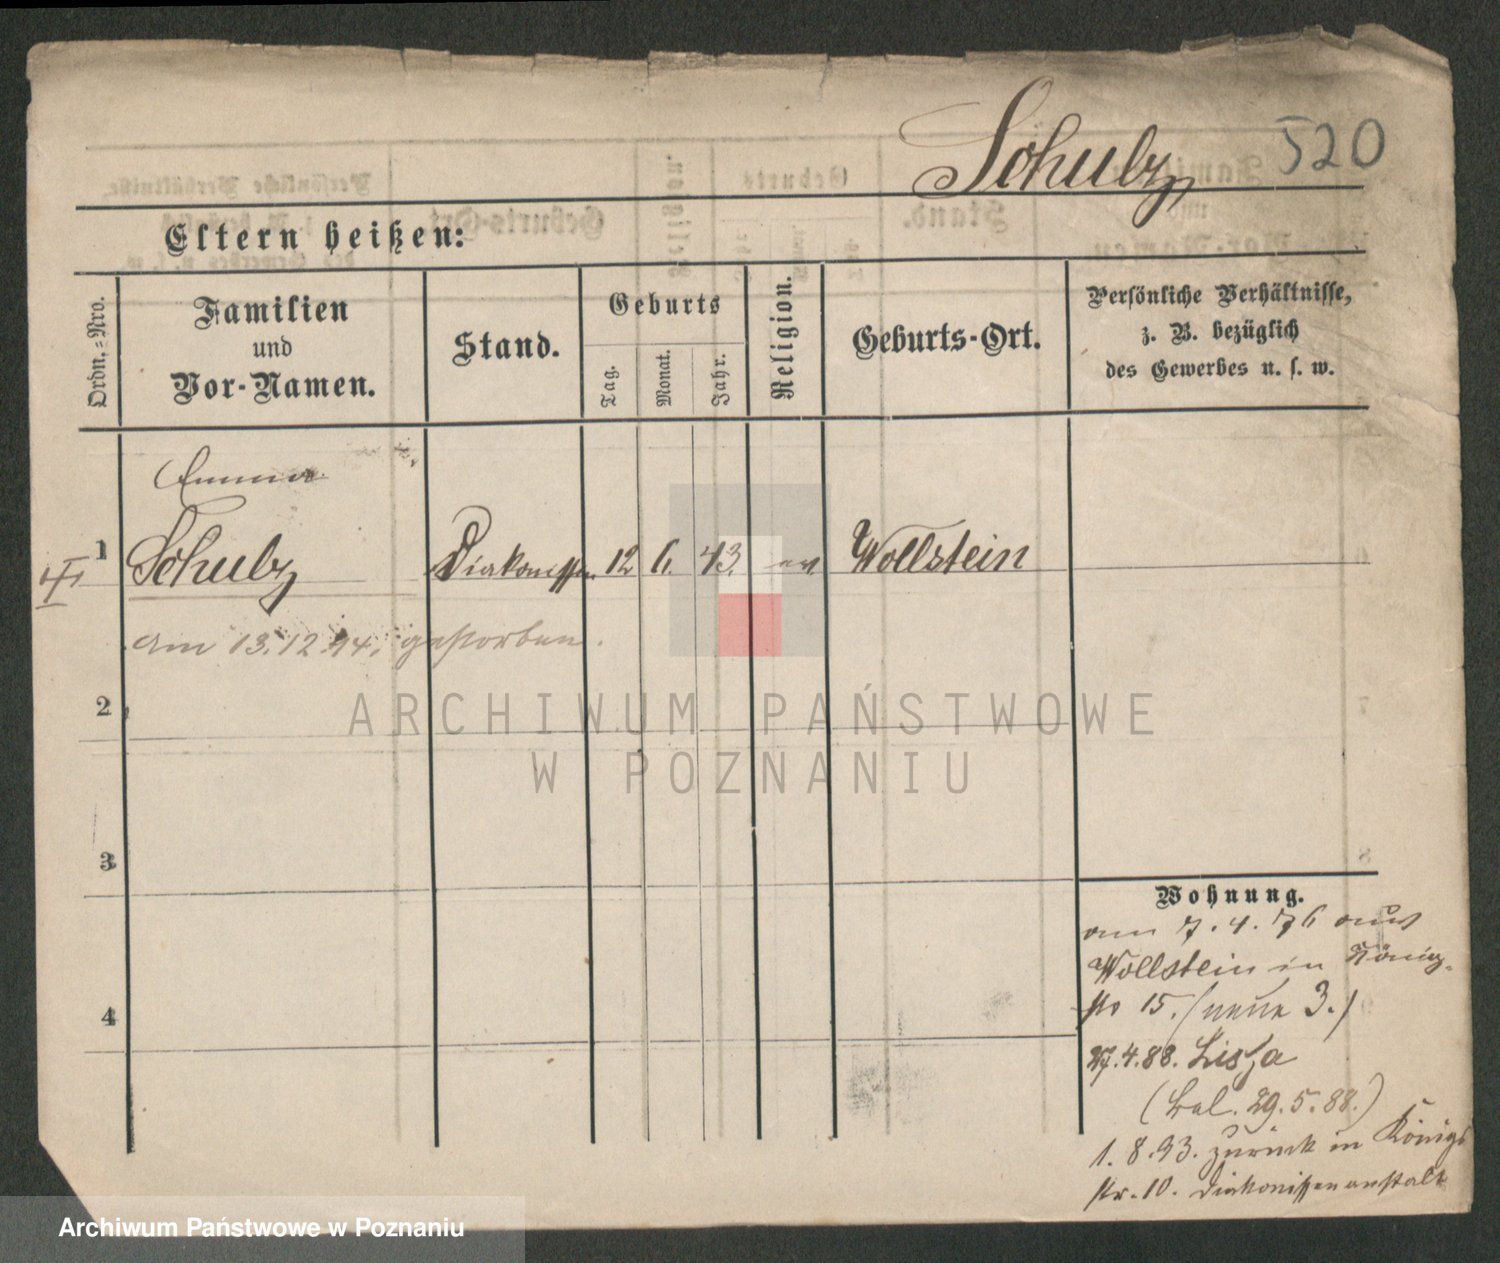 Schulz
520
Eltern heißen:
Ordn.-Nro.
Familien
und
Vor-Namen.
Stand.
Geburts
Tag.
Monat.
Jahr.
Religion.
Geburts-Ort.
Persönliche Verhältnisse,
z. B. bezüglich
des Gewerbes u. s. w.
Emma
1 Schulz Diakonissen 12 6. 43. ev Wollstein
am 13.12.94. gestorben.
2
3
4
Wohnung.
am 7.4.76 aus
Wollstein in König-
str 15. (neue 3.)
27.4.88. Lissa
(bal. 29.5.88.)
1.8.93. zurück in Königs
str. 10. Diakonissenanstalt
ARCHIWUM PAŃSTWOWE
W POZNANIU
Archiwum Państwowe w Poznaniu